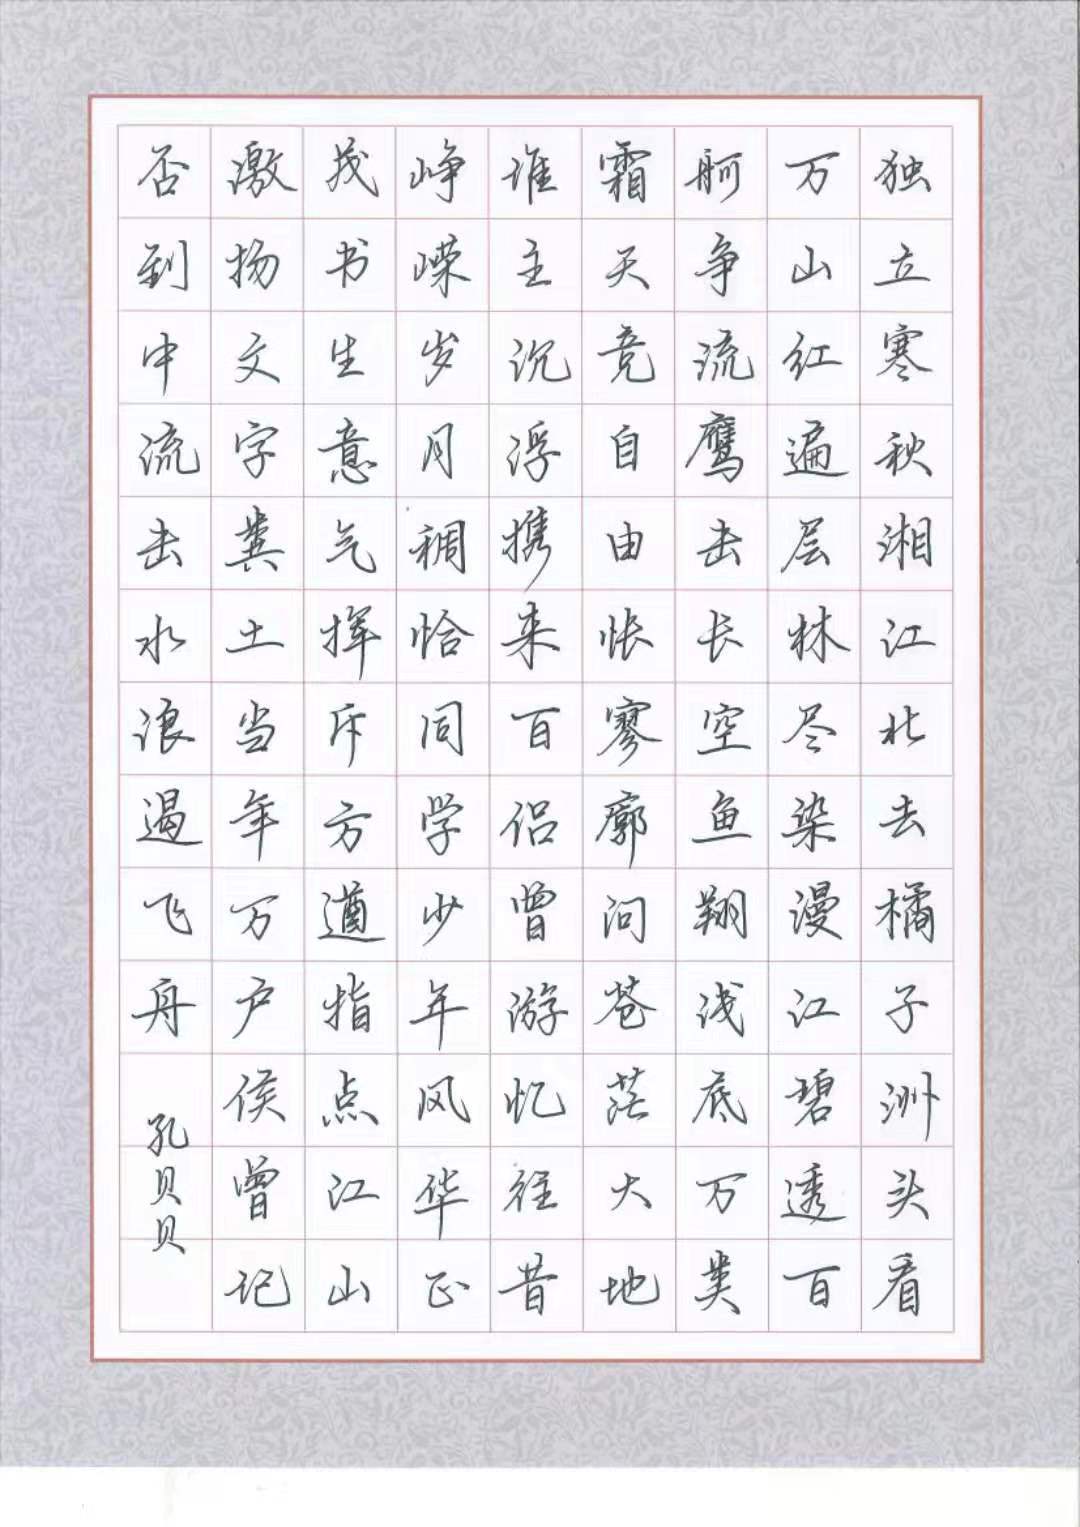 独立寒秋湘江北去橘子洲头看
万山红遍层林尽染漫江碧透百
舸争流鹰击长空鱼翔浅底万类
霜天竞自由怅寥廓问苍茫大地
谁主沉浮携来百侣曾游忆往昔
峥嵘岁月稠恰同学少年风华正
茂书生意气挥斥方遒指点江山
激扬文字粪土当年万户侯曾记
否到中流击水浪遏飞舟
孔贝贝